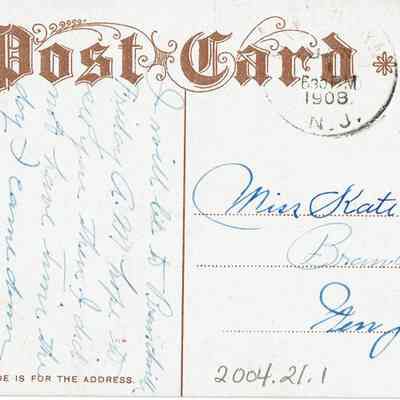 Post Card
6 30 PM
1908
N. J.
I will be to
Friday A. M. hope to
see you then I did
not have time the
day I came down
Miss Kate
Bran
Gen
DE IS FOR THE ADDRESS.
2004.21.1